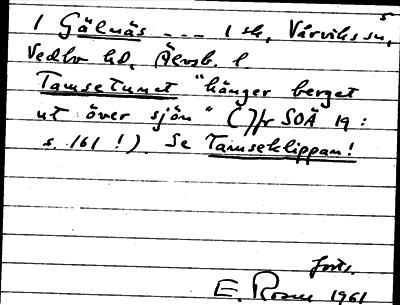 1 Gälnäs --- 1 sk, Vårviks sn,
Vedbo hd, Älvsb. l
Tamsetunet "hänger berget
ut över sjön" (Jfr SOÄ 19:
s. 161!) Se Tamseklippan!
forts.
E. Rosen 1961